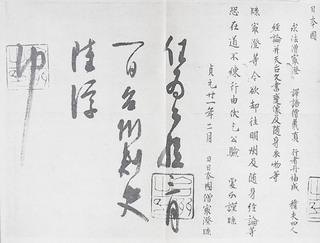 日本國
求法僧最澄　譯語僧義真　行者丹福成　擔夫四人
經論并天台文書變像及隨身衣物等
牒最澄等今欲却往明州及隨身經論等
恐在道不練行由伏乞公驗　處分謹牒
貞元廿一年二月　日日本國僧最澄牒
任為公驗三月
一日台州刺史
陸淳
印